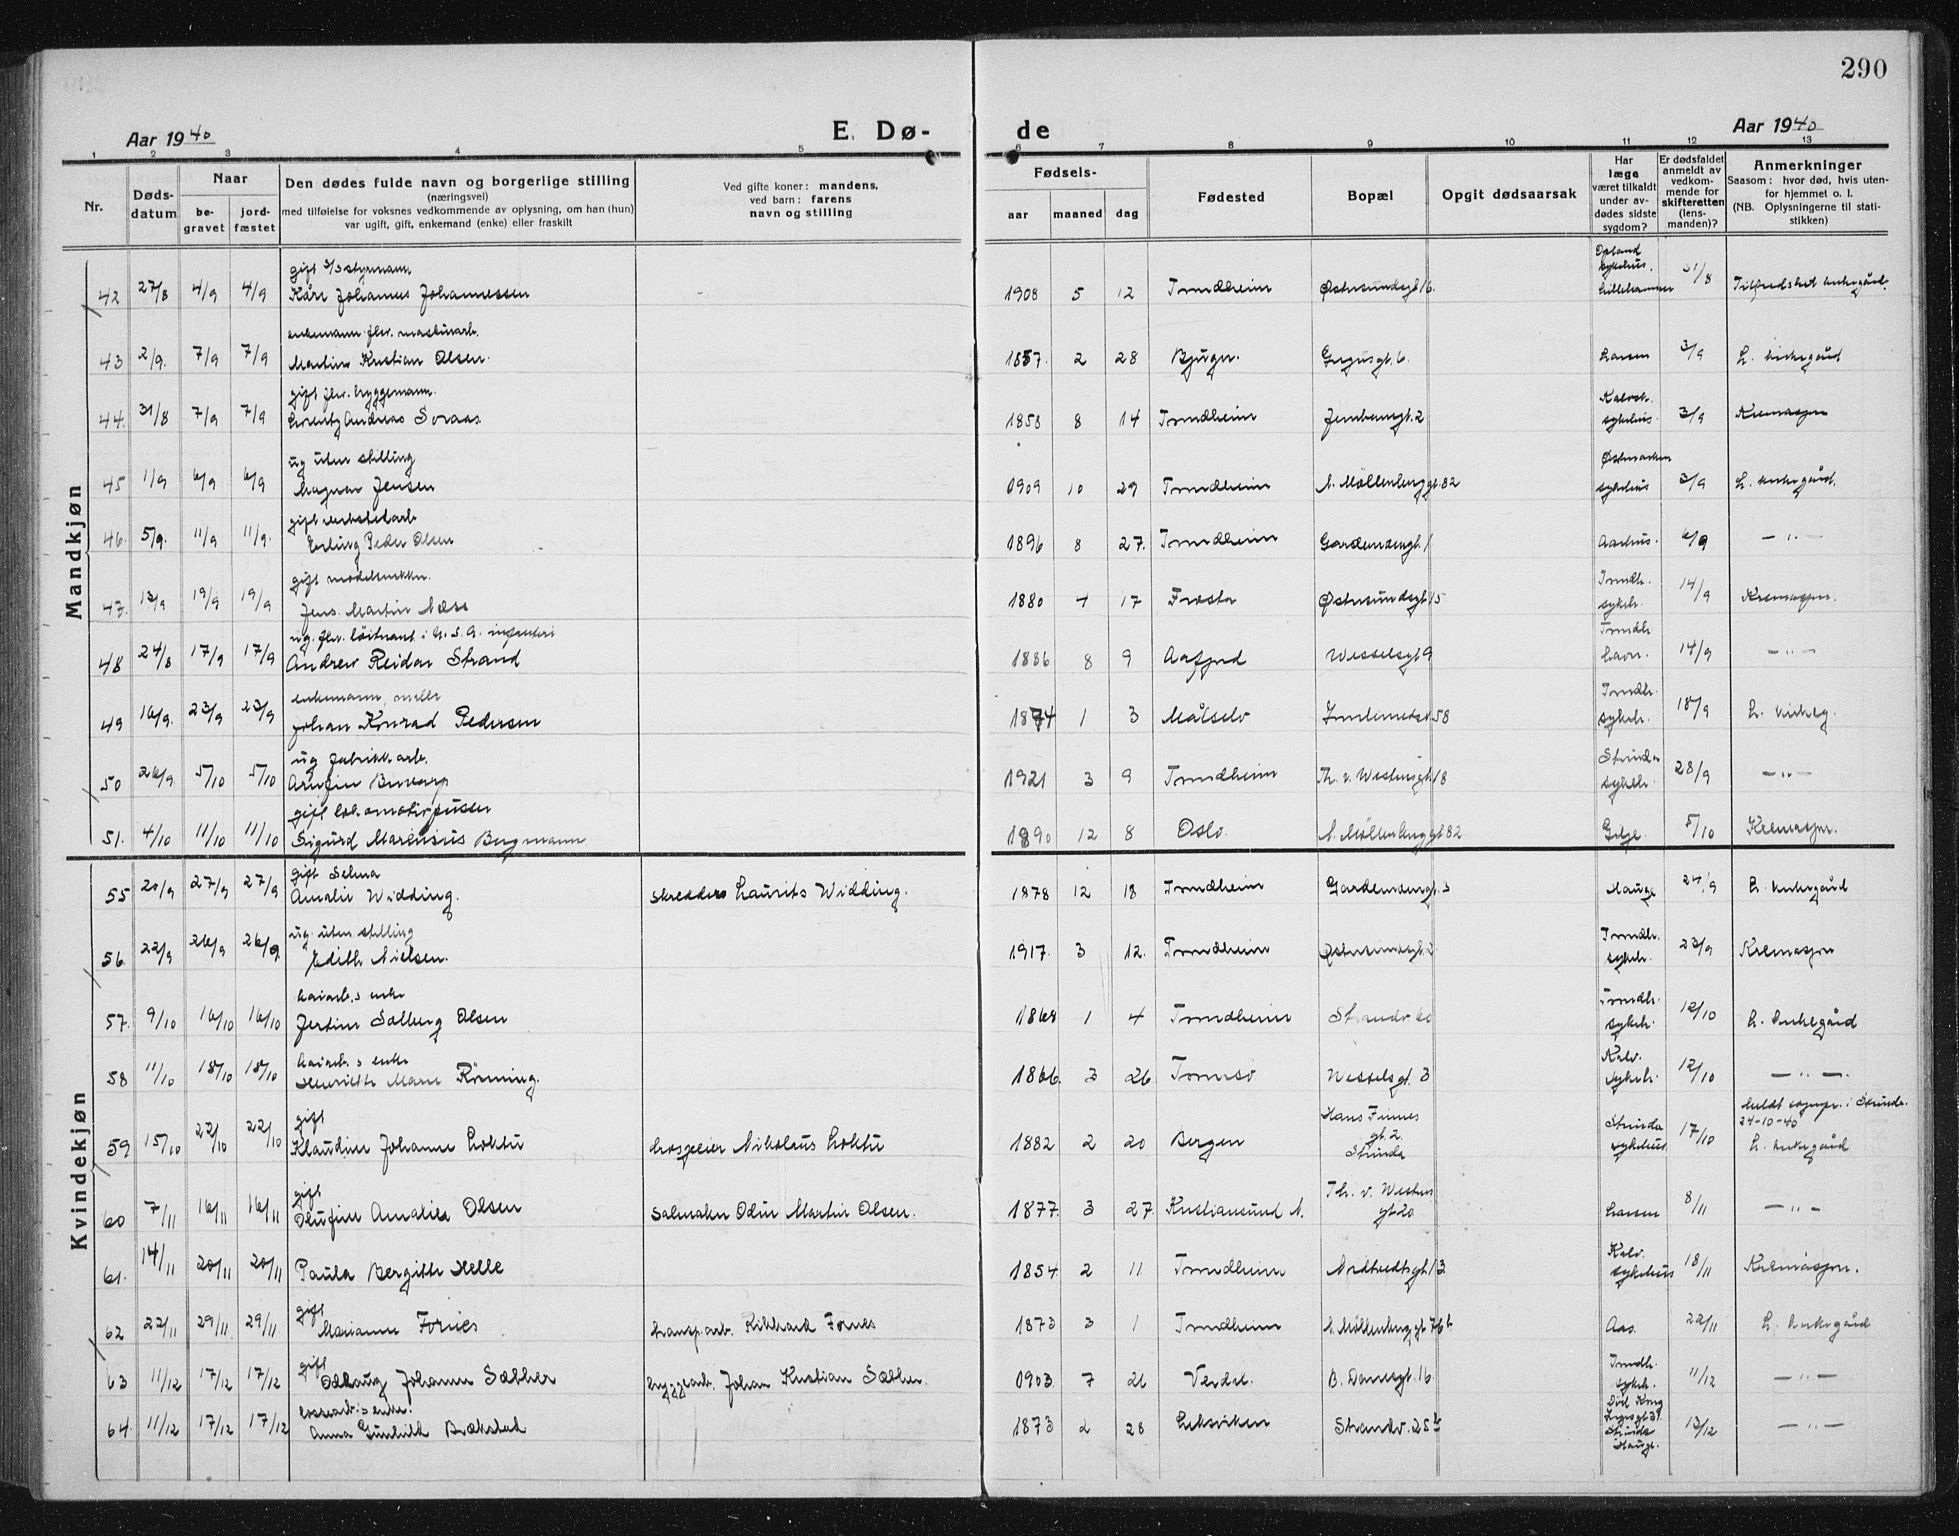 290
Aar 1940
E. Dø-
de
Aar 1940
1 2 3 4 5 6 7 8 9 10 11 12 13
Nr.
Døds-
datum
Naar
be-
gravet
jord-
fæstet
Den dødes fulde navn og borgerlige stilling
(næringsvei)
med tilføielse for voksnes vedkommende av oplysning, om han (hun)
var ugift, gift, enkemand (enke) eller fraskilt
Ved gifte koner: mandens,
ved barn: farens
navn og stilling
Fødsels-
aar maaned dag
Fødested
Bopæl
Opgit dødsaarsak
Har
læge
været tilkaldt
under av-
dødes sidste
sygdom?
Er dødsfaldet
anmeldt av
vedkom-
mende for
skifteretten
(lens-
manden)?
Anmerkninger
Saasom: hvor død, hvis uten-
for hjemmet o. l.
(NB. Oplysningerne til stati-
stikken)
Mandkjøn
gift styrmann
42 27/8 4/9 4/9 Kåre Johannes Johannessen 1908 5 12 Trondheim Østersundsgt 16. Opland sykehus. Lillehammer 31/8 Tilfredshet kirkegård.
enkemann fhv. maskinarb.
43 2/9. 7/9 7/9 Martin Kristian Olsen. 1857. 2 28 Bjugn. gt. 6. Larsen 3/9 L. kirkegård
gift fhv. bryggemann.
44. 31/8 7/9 7/9 Lorentz Andreas Soraas 1858 8 14 Trondheim Jernbanegt. 2 sykehus 3/9 Kremasjon
ug uten stilling
45 1/9 6/9 6/9 Magnar Jensen 1909 10 29 Trondheim N. Møllenberggt. 82 Østmarken sykehus 3/9 L. kirkegård.
gift verkstedarb
46. 5/9. 11/9 11/9. Erling Peder Olsen 1896 8 27. Trondheim Gardemoensgt. 1 Aarhus. 6/9 — " —
gift modellsnekker.
47. 13/9 19/9 19/9 Jens Martin Næss 1880 4 17 Frosta Østersundsgt 15 Trondh. sykeh. 14/9 Kremasjon.
ug. fhv. løitnant i U.S.A. infanteri
48 24/8 17/9 17/9 Andrew Reidar Strand 1886 8 9 Aafjord Wesselsgt 9 Trondh havn. 14/9 — " —
enkemann, møller
49 16/9. 23/9 23/9 Johan Konrad Pedersen 1874 1 3 Målselv 58 Trondh. sykeh. 18/9 L. kirkeg.
ug fabrikkarb.
50 26/9 5/10 5/10 Arnfinn 1921 3 9 Trondheim Th. v. Westensgt. 18 Strinda sykeh. 28/9 — " —
gift lokomotivpusser
51. 4/10 11/10 11/10 Sigurd Marensius Bergmann 1890 12 8 Oslo. N. Møllenberggt 82 5/10 Kremasjon.
Kvindekjøn
gift Selma
55 20/9 27/9 27/9 Amalie Widding. skredder Laurits Widding. 1878 12 18 Trondheim Gardemoensgt. 3 Hauge 24/9 L. kirkegård
ug. uten stilling
56. 22/9 26/9 26/9 Edith Nielsen. 1917. 3 12. Trondheim Østersundsgt. 2 Trondh. sykeh. 23/9 Kremasjon
havarb.s enke
57. 9/10 16/10 16/10 Jertine Solberg Olsen 1868 1 4 Trondheim Strandv 60 Trondh. sykeh. 12/10 L. kirkegård
havarb. s enke
58 11/10 18/10 18/10 Henriette Marie Rönning. 1866. 3 26 Tromsö Wesselsgt. 3 Kalv. sykeh. 12/10 — " —.
gift
59 15/10 22/10 22/10 Klaudine Johanne Loktu Nikolaus Loktu 1882 2 20 Bergen Hans Finnes gt. 2. Strinda Strinda sykehus 17/10 meldt sognepr. i Strinda. 24-10-40 L. kirkegård
gift
60 7/11 16/11 16/11 Olufine Amalie Olsen salmaker Odin Martin Olsen. 1877. 3 27. Kristiansund N. Th. v. Westens gt 20 Larsen 8/11 — " —
61. 14/11 20/11 20/11 Paula Bergitte Helle 1854. 2 11 Trondheim gt. 13 Kalv. sykehus 18/11 Kremasjon.
gift
62 22/11 29/11 29/11 Marianne Fornes transp.arb. Rikhard Fornes 1873 3 1 Trondheim N. Møllenberggt. 76b Aas. 22/11 L. kirkegård
gift
63 11/12 17/12 17/12 Odlaug Johanne Sæbber bryggearb. Johan Kristian Sæbber. 1903. 7 26 Verdal. B. Dons gt. 16. Trondh. sykeh. 11/12 — " —
lossearb.s enke.
64. 11/12 17/12 17/12 Anna Gunhild Brækstad 1873 2 28 Leksviken Strandv. 25b Strinda Hauge. 13/12 — " —